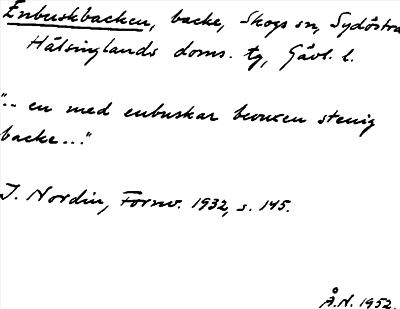 Enbuskbacken, backe, Skogs sn, Sydöstra
Hälsinglands doms. tg, Gävl. l.
"... en med enbuskar beuxen stenig
backe..."
I. Nordin, Fornv. 1932, s. 145.
Å.N. 1952.